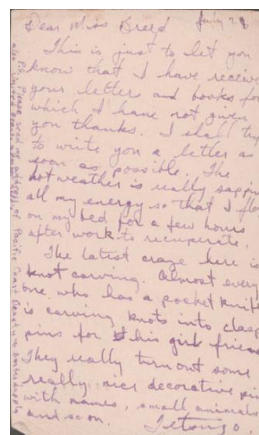 Dear Miss Breed July 28
This is just to let you
know that I have receive
your letter and books for
which I have not given
you thanks. I shall try
to write you a letter as
soon as possible. The
hot weather is really sapping
all my energy so that I flop
on my bed for a few hours
after work to recuperate.
The latest craze here is
knot carving. Almost every
one who has a pocket knife
is carving knots into clasp
pins for his girl friend
They really turn out some
really nice decorative pin
with names, small animals
and so on. Tetsuzo.